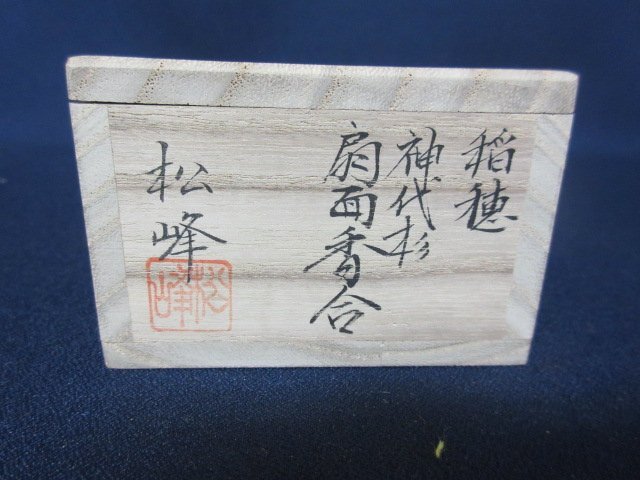 稲穂
神代杉
扇面香合
松峰
松峰